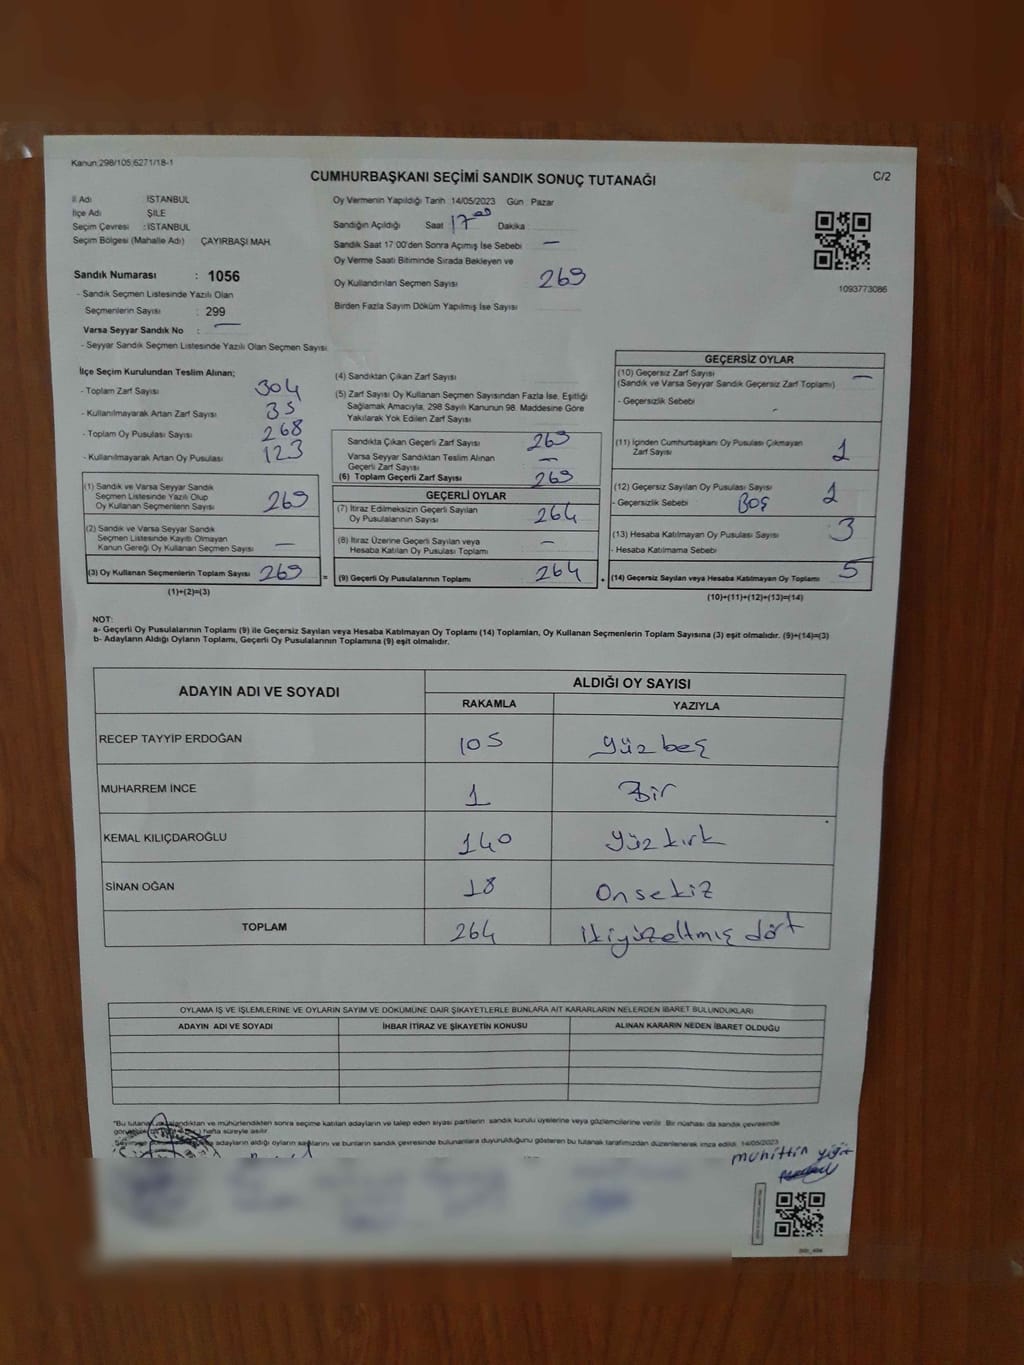 Kanun:298/105,6271/18-1
CUMHURBAŞKANI SEÇİMİ SANDIK SONUÇ TUTANAĞI
C/2
İl Adı İSTANBUL
İlçe Adı ŞİLE
Seçim Çevresi : İSTANBUL
Seçim Bölgesi (Mahalle Adı) ÇAYIRBAŞI MAH.
Sandık Numarası : 1056
- Sandık Seçmen Listesinde Yazılı Olan
Seçmenlerin Sayısı : 299
Varsa Seyyar Sandık No : —
- Seyyar Sandık Seçmen Listesinde Yazılı Olan Seçmen Sayısı
Oy Vermenin Yapıldığı Tarih 14/05/2023 Gün Pazar
Sandığın Açıldığı Saat 17⁰⁰ Dakika
Sandık Saat 17:00'den Sonra Açımış İse Sebebi —
Oy Verme Saati Bitiminde Sırada Bekleyen ve
Oy Kullandırılan Seçmen Sayısı 269
Birden Fazla Sayım Döküm Yapılmış İse Sayısı
1093773086
İlçe Seçim Kurulundan Teslim Alınan;
- Toplam Zarf Sayısı 304
- Kullanılmayarak Artan Zarf Sayısı 35
- Toplam Oy Pusulası Sayısı 268
- Kullanılmayarak Artan Oy Pusulası 123
(1) Sandık ve Varsa Seyyar Sandık
Seçmen Listesinde Yazılı Olup
Oy Kullanan Seçmenlerin Sayısı 269
(2) Sandık ve Varsa Seyyar Sandık
Seçmen Listesinde Kayıtlı Olmayan
Kanun Gereği Oy Kullanan Seçmen Sayısı —
(3) Oy Kullanan Seçmenlerin Toplam Sayısı 269
(1)+(2)=(3)
(4) Sandıktan Çıkan Zarf Sayısı
(5) Zarf Sayısı Oy Kullanan Seçmen Sayısından Fazla İse, Eşitliği
Sağlamak Amacıyla, 298 Sayılı Kanunun 98. Maddesine Göre
Yakılarak Yok Edilen Zarf Sayısı
Sandıkta Çıkan Geçerli Zarf Sayısı 269
Varsa Seyyar Sandıktan Teslim Alınan
Geçerli Zarf Sayısı —
(6) Toplam Geçerli Zarf Sayısı 269
GEÇERLİ OYLAR
(7) İtiraz Edilmeksizin Geçerli Sayılan
Oy Pusulalarının Sayısı 264
(8) İtiraz Üzerine Geçerli Sayılan veya
Hesaba Katılan Oy Pusulası Toplamı —
= (9) Geçerli Oy Pusulalarının Toplamı 264
GEÇERSİZ OYLAR
(10) Geçersiz Zarf Sayısı —
(Sandık ve Varsa Seyyar Sandık Geçersiz Zarf Toplamı)
- Geçersizlik Sebebi
(11) İçinden Cumhurbaşkanı Oy Pusulası Çıkmayan
Zarf Sayısı 1
(12) Geçersiz Sayılan Oy Pusulası Sayısı 1
- Geçersizlik Sebebi BOŞ
(13) Hesaba Katılmayan Oy Pusulası Sayısı 3
- Hesaba Katılmama Sebebi
+ (14) Geçersiz Sayılan veya Hesaba Katılmayan Oy Toplamı 5
(10)+(11)+(12)+(13)=(14)
NOT:
a- Geçerli Oy Pusulalarının Toplamı (9) ile Geçersiz Sayılan veya Hesaba Katılmayan Oy Toplamı (14) Toplamları, Oy Kullanan Seçmenlerin Toplam Sayısına (3) eşit olmalıdır. (9)+(14)=(3)
b- Adayların Aldığı Oyların Toplamı, Geçerli Oy Pusulalarının Toplamına (9) eşit olmalıdır.
ADAYIN ADI VE SOYADI ALDIĞI OY SAYISI
RAKAMLA YAZIYLA
RECEP TAYYIP ERDOĞAN 105 yüzbeş
MUHARREM İNCE 1 Bir
KEMAL KILIÇDAROĞLU 140 yüzkırk
SİNAN OĞAN 18 onsekiz
TOPLAM 264 ikiyüzeltmış dört
OYLAMA İŞ VE İŞLEMLERİNE VE OYLARIN SAYIM VE DÖKÜMÜNE DAİR ŞİKAYETLERLE BUNLARA AİT KARARLARIN NELERDEN İBARET BULUNDUKLARI
ADAYIN ADI VE SOYADI İHBAR İTİRAZ VE ŞİKAYETİN KONUSU ALINAN KARARIN NEDEN İBARET OLDUĞU
ve mühürlendikten sonra seçime katılan adayların ve talep eden siyasi partilerin sandık kurulu üyelerine veya gözlemcilerine verilir. Bir nüshası da sandık çevresinde
hafta süreyle asılır.
adayların aldığı oyların sayılarını ve bunların sandık çevresinde bulunanlara duyurulduğunu gösteren bu tutanak tarafımızdan düzenlenerek imza edildi. 14/05/2023
muhittin